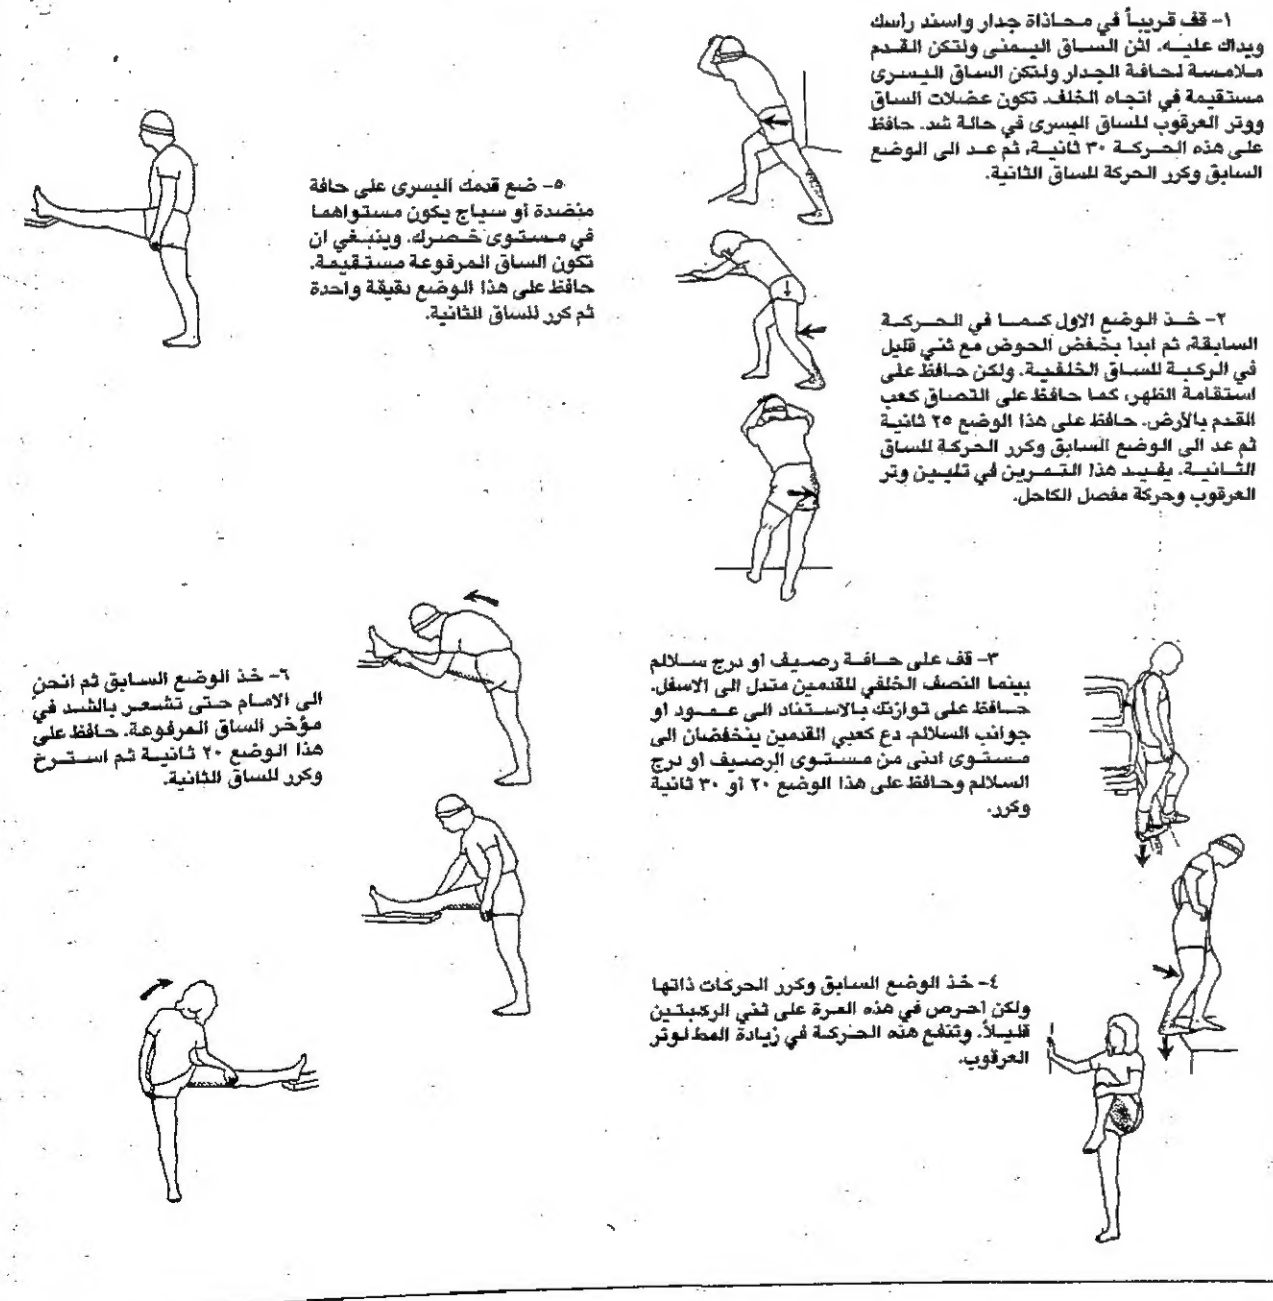 ١- قف قريباً في محاذاة جدار واسند رأسك
ويداك عليه. اثن الساق اليمنى ولتكن القدم
ملامسة لحافة الجدار ولتكن الساق اليسرى
مستقيمة في اتجاه الخلف. تكون عضلات الساق
ووتر العرقوب للساق اليسرى في حالة شد. حافظ
على هذه الحركة ٣٠ ثانية، ثم عد الى الوضع
السابق وكرر الحركة للساق الثانية.
٢- خذ الوضع الاول كما في الحركة
السابقة، ثم ابدأ بخفض الحوض مع ثني قليل
في الركبة للساق الخلفية. ولكن حافظ على
استقامة الظهر، كما حافظ على التصاق كعب
القدم بالأرض. حافظ على هذا الوضع ٢٥ ثانية
ثم عد الى الوضع السابق وكرر الحركة للساق
الثانية. يفيد هذا التمرين في تليين وتر
العرقوب وحركة مفصل الكاحل.
٣- قف على حافة رصيف او درج سلالم
بينما النصف الخلفي للقدمين متدل الى الاسفل.
حافظ على توازنك بالاستناد الى عمود او
جوانب السلالم. دع كعبي القدمين ينخفضان الى
مستوى ادنى من مستوى الرصيف او درج
السلالم وحافظ على هذا الوضع ٢٠ أو ٣٠ ثانية
وكرر.
٤- خذ الوضع السابق وكرر الحركات ذاتها
ولكن احرص في هذه المرة على ثني الركبتين
قليلاً. وتنفع هذه الحركة في زيادة المط لوتر
العرقوب.
٥- ضع قدمك اليسرى على حافة
منضدة أو سياج يكون مستواهما
في مستوى خصرك. وينبغي ان
تكون الساق المرفوعة مستقيمة.
حافظ على هذا الوضع دقيقة واحدة
ثم كرر للساق الثانية.
٦- خذ الوضع السابق ثم انحن
الى الامام حتى تشعر بالشد في
مؤخر الساق المرفوعة. حافظ على
هذا الوضع ٢٠ ثانية ثم استرخ
وكرر للساق الثانية.